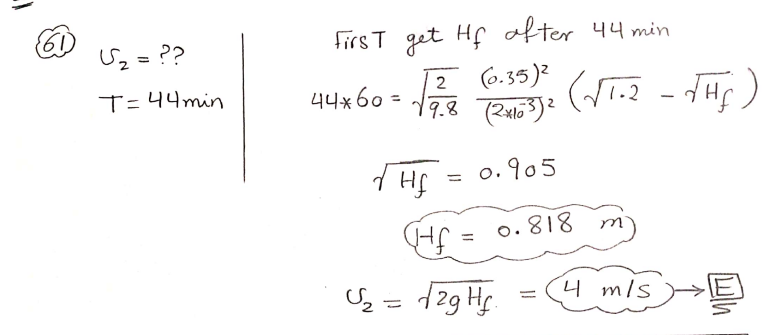 61
υ₂ = ??
T = 44min
First get Hf after 44 min
44*60 = √(2/9.8) (0.35)²/(2x10⁻³)² (√1.2 - √Hf)
√Hf = 0.905
Hf = 0.818 m
υ₂ = √2gHf = 4 m/s → E